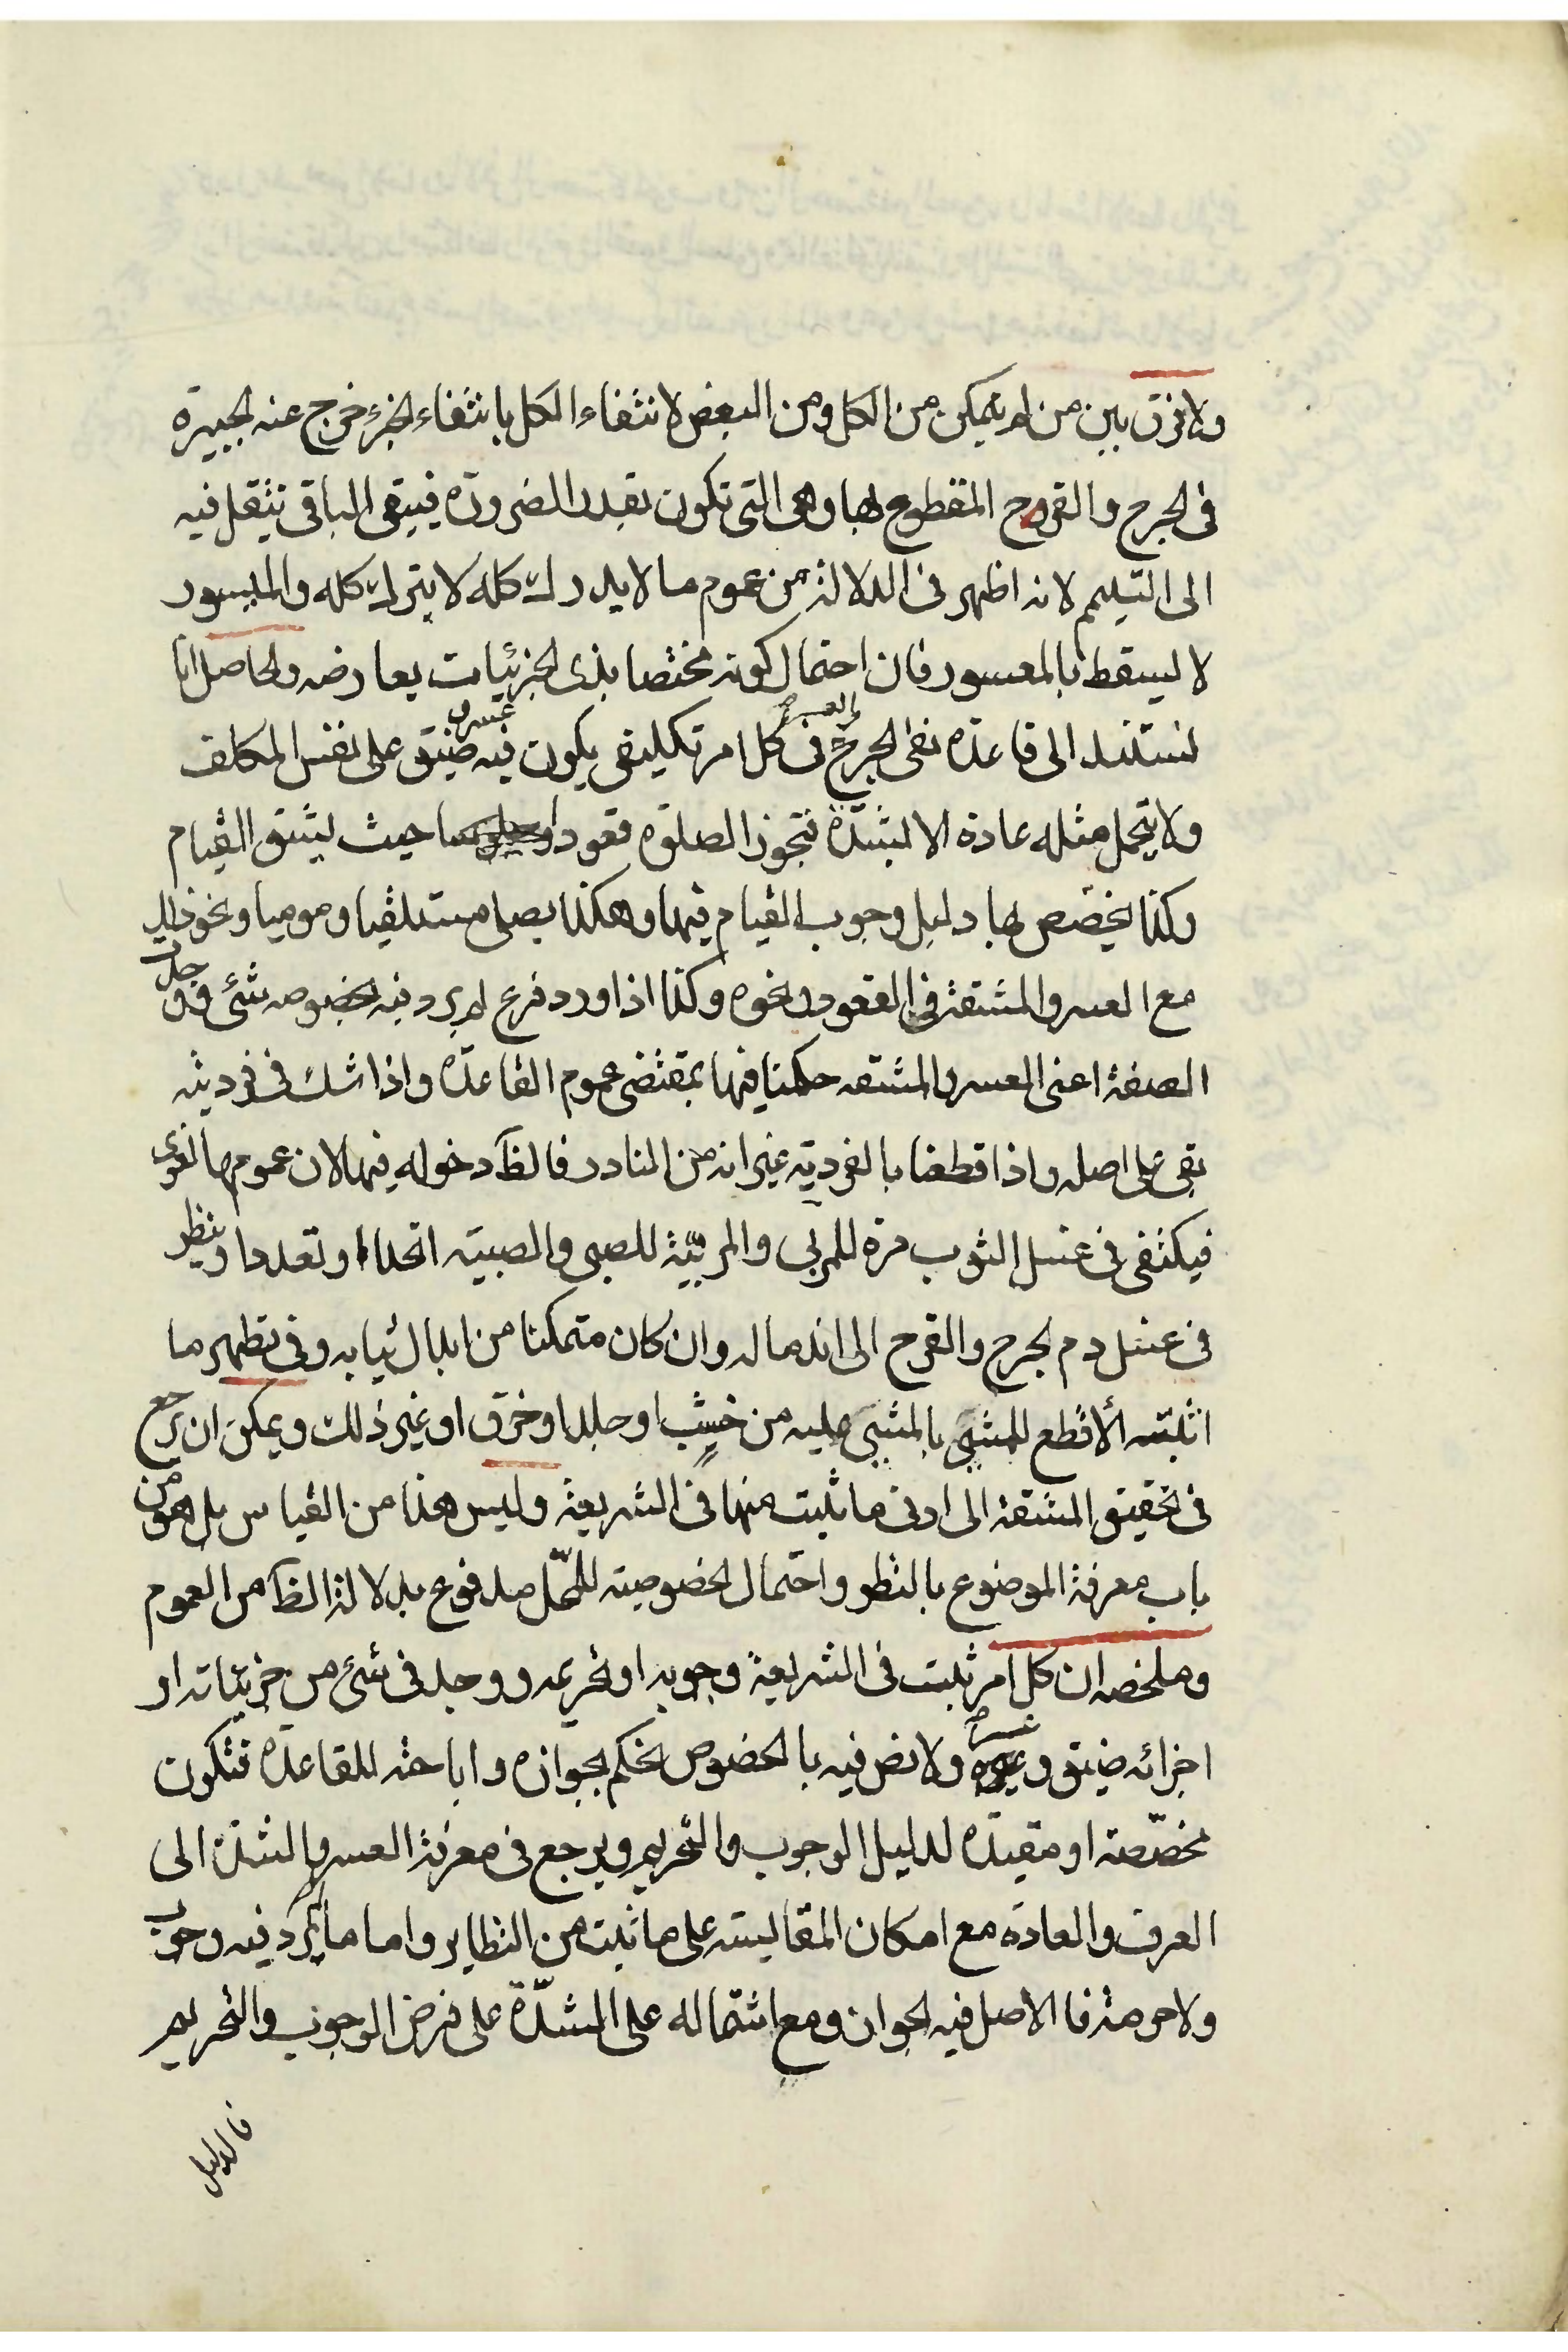 ولا فرق بين من لم يتمكن من الكل ومن البعض لانتفاء الكل بانتفاء الجزء خرج عنه الجبيرة
فى الجرح والقروح المقطوع بها وهى التى تكون بقدر الضرورة فيبقى الباقى ينتقل فيه
الى التيمم لانه اظهر فى الدلالة من عموم ما لا يدرك كله لا يترك كله والميسور
لا يسقط بالمعسور فان احتمال كونه مختصا بذى الجزئيات يعارضه والحاصل انا
نستند الى قاعدة نفى الحرج والعسر فى كل امر تكليفى يكون فيه ضيق عسر على نفس المكلف
ولا يتحمل مثله عادة الا بشدة فتجوز الصلوة قعودا حيث يشق القيام
وكذا يخصص بها دليل وجوب القيام فيها وهكذا يصلى مستلقيا وموميا ونحو ذلك
مع العسر والمشقة فى القعود ونحوه وكذا اذا ورد فرع لم يرد فيه بخصوصه شئ وجدت فيه
الصفة اعنى العسر والمشقه حكمنا فيها بمقتضى عموم القاعدة واذا شك فى فرديته
بقى على اصله واذا قطعنا بالفرديّه غير انه من النادر فالظ دخوله فيها لان عمومها لغوى
فيكتفى فى غسل الثوب مرة للمربى والمربّية للصبى والصبيّه اتحدا او تعددا وينظر
فى غسل دم الجرح والقرح الى اندماله وان كان متمكنا من ابدال ثيابه وفى تطهير ما
اثبته الأقطع للمشى بالمشى عليه من خشب او جلد او خرق او غير ذلك ويمكن ان يرجع
فى تحقيق المشقة الى ادنى ما ثبت منها فى الشريعة وليس هذا من القياس بل هو من
باب معرفة الموضوع بالنظر واحتمال الخصوصيته للمحّل مدفوع بدلالة الظ من العموم
وملخصه ان كل امر ثبت فى الشريعة وجوبه او تحريمه ووجد فى شئ من جزيئاته او
اجزائه ضيق وعسر ولا نص فيه بالخصوص نحكم بجوازه واباحته للقاعدة فتكون
مخصّصة او مقيدة لدليل الوجوب والتحريم ويرجع فى معرفة العسر والشدة الى
العرف والعادة مع امكان المقايسته على ما ثبت من النظاير واما ما لم يرد فيه وجوب
ولا حرمة فالاصل فيه الجواز ومع اشتماله على الشدّة على فرض الوجوب والتحريم
فالدليل